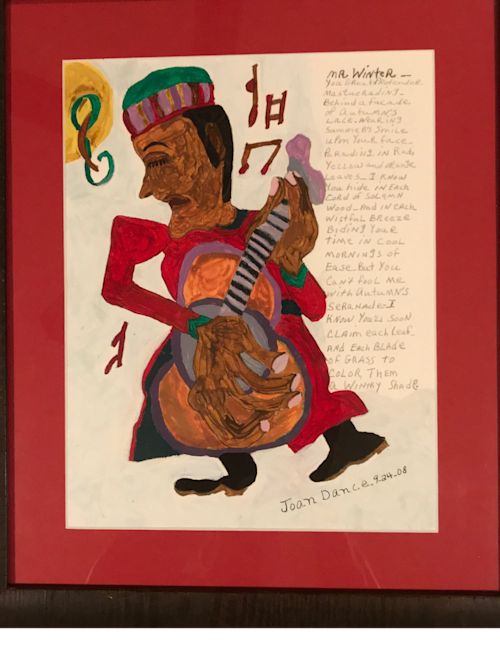 MR WINTER_
You Great Pretender
Behind a facade
of AUTUMN'S
LACE. WEARING
SUMMERS Smile
upon Your face_
PARADING IN Reds
Yellow and orange
Leaves_ I KNOW
You hide IN Each
Cord of Solemn
Wood_And in each
wistful Breeze
BIDING YOUR
TIME IN COOL
MORNINGS of
Ease_But You
CAN'T fool Me
with AUTUMN'S
SERANADE_I
KNOW You'll soon
CLAIM each Leaf_
ANd Each BLADE
of GRASS to
COLOR THEM
a WINTRY Shade
Joan Dance_9.24_08